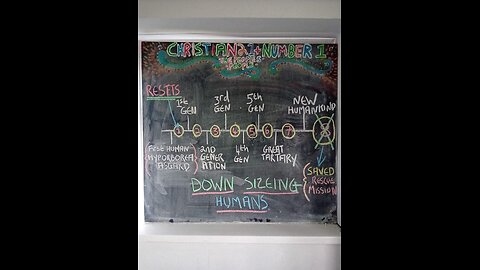 CHRISTIANA + NUMBER 1
RESETS
1st
GEN
3rd
GEN
5th
GEN
NEW
HUMANKIND
1 2 3 4 5 6 7 8
FREE HUMAN
HYPORBOREA
ASGARD
2ND
GENER
ATION
4th
GEN
GREAT
TARTARY
SAVED
RESCUE
MISSION
DOWN SIZEING
HUMANS